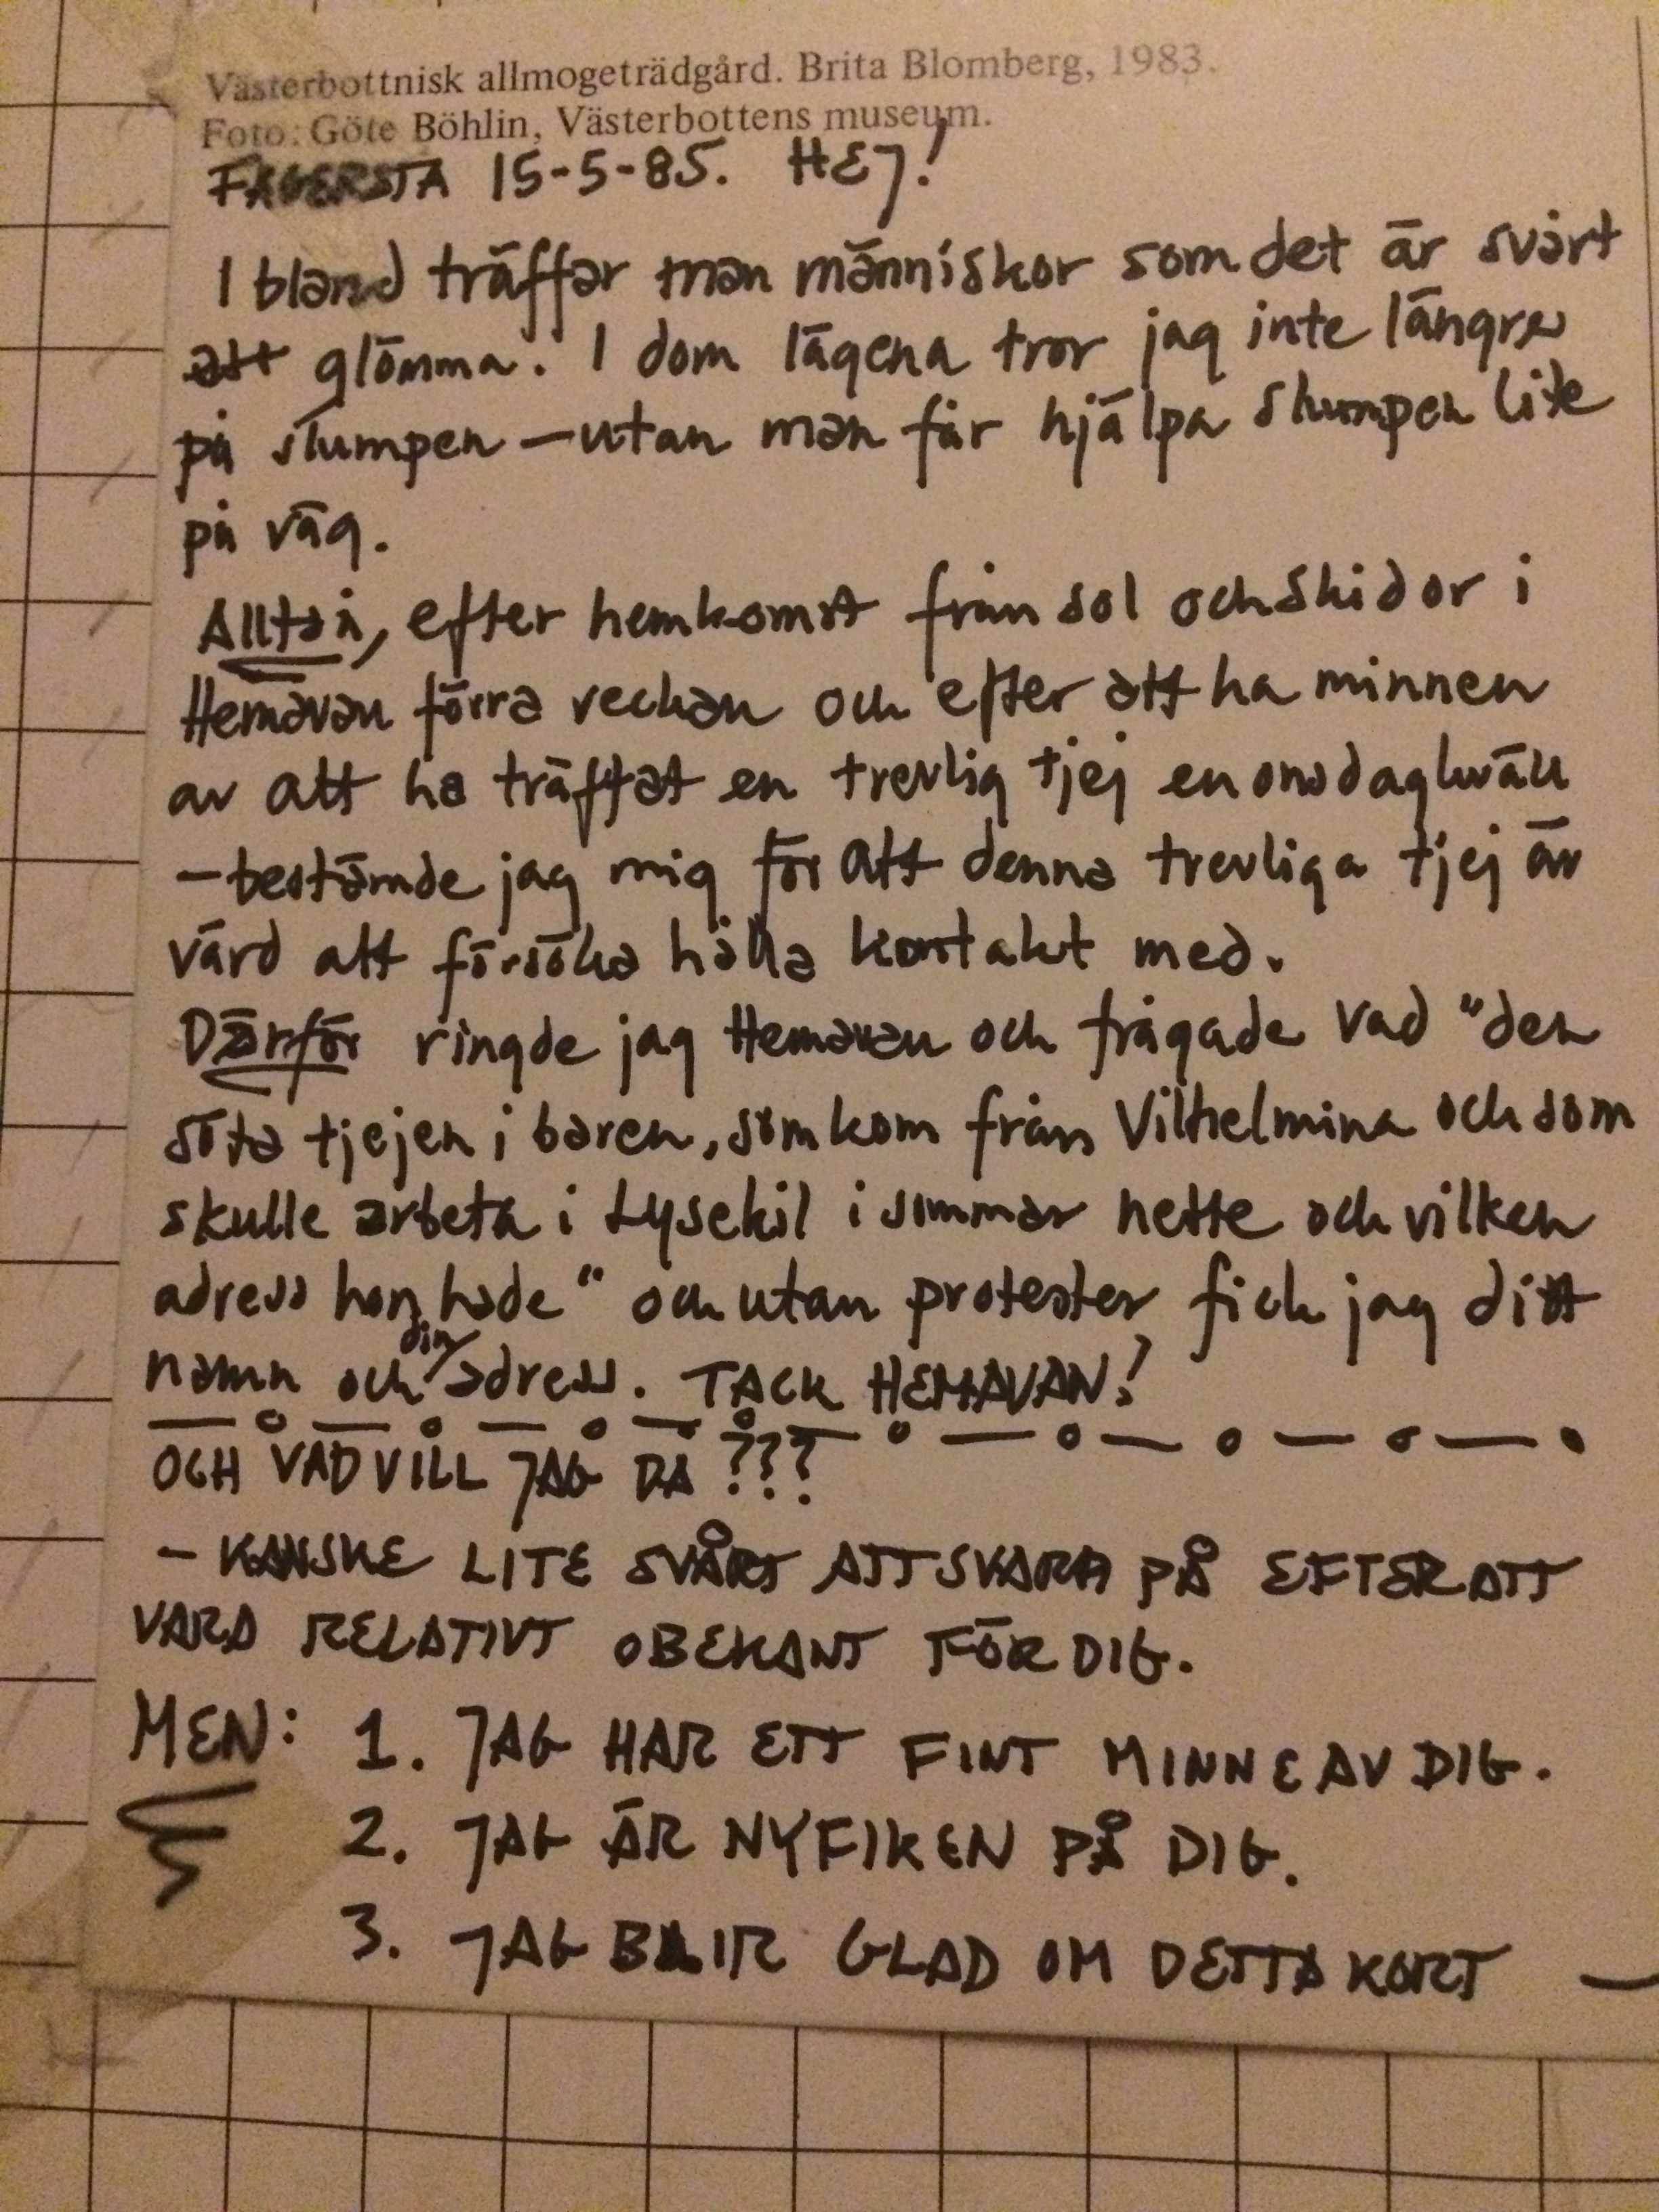 Västerbottnisk allmogeträdgård. Brita Blomberg, 1983.
Foto: Göte Böhlin, Västerbottens museum.
FAGERSTA 15-5-85. HEJ!
I bland träffar man människor som det är svårt
att glömma. I dom lägena tror jag inte längre
på slumpen – utan man får hjälpa slumpen lite
på väg.
Alltså, efter hemkomst från sol och skidor i
Hemavan förra veckan och efter att ha minnen
av att ha träffat en trevlig tjej en onsdagkväll
– bestämde jag mig för att denna trevliga tjej är
värd att försöka hålla kontakt med.
Därför ringde jag Hemavan och frågade vad "den
söta tjejen i baren, som kom från Vilhelmina och som
skulle arbeta i Lysekil i sommar hette och vilken
adress hon hade" och utan protester fick jag ditt
namn och din adress. TACK HEMAVAN!
OCH VAD VILL JAG DÅ ???
– KANSKE LITE SVÅRT ATT SVARA PÅ EFTER ATT
VARA RELATIVT OBEKANT FÖR DIG.
MEN: 1. JAG HAR ETT FINT MINNE AV DIG.
2. JAG ÄR NYFIKEN PÅ DIG.
3. JAG BLIR GLAD OM DETTA KORT –